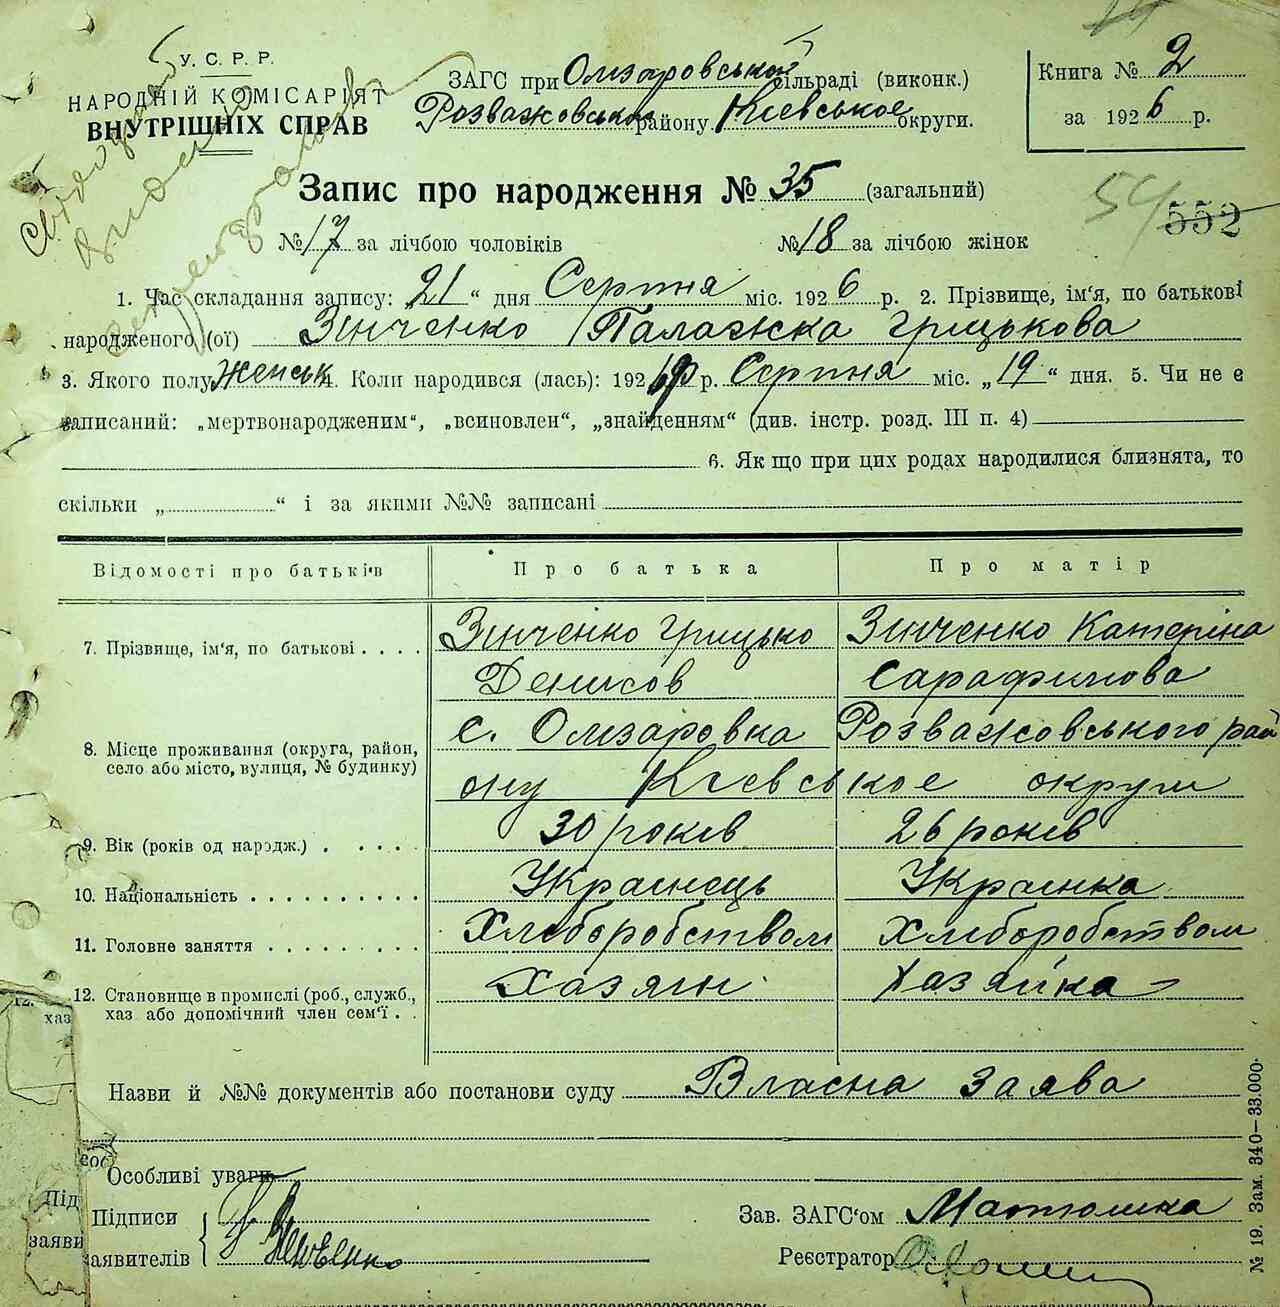 У. С. Р. Р.
НАРОДНІЙ КОМІСАРІЯТ
ВНУТРІШНІХ СПРАВ
ЗАГС при Олизаровській сільраді (виконк.)
Розважовськ району Кіевськое округи.
Книга № 2
за 1926 р.
Запис про народження № 35 (загальний)
54 552
№ 17 за лічбою чоловіків № 18 за лічбою жінок
1. Час складання запису: „21“ дня Серпня міс. 1926 р. 2. Прізвище, ім‘я, по батькові
народженого (ої) Зинченко Палажка Грицькова
3. Якого полу Женськ 4. Коли народився (лась): 1926 р. Серпня міс. „19“ дня. 5. Чи не є
записаний: „мертвонародженим“, „всиновлен“, „знайденням“ (див. інстр. розд. III п. 4)
6. Як що при цих родах народилися близнята, то
скільки „ “ і за якими №№ записані
Відомості про батьків Про батька Про матір
7. Прізвище, ім‘я, по батькові . . . . Зинченко Грицько Зинченко Катеріна
Денисов Сарафимова
8. Місце проживання (округа, район, село або місто, вулиця, № будинку) с. Олизаровка Розважовського рай
ону Кіевськое округи
9. Вік (років од народж.) . . . . . 30 років 26 років
10. Національність . . . . . . . . . . Украинець Украинка
11. Головне заняття . . . . . . . . . Хліборобством Хліборобством
12. Становище в промислі (роб., служб., хаз або допомічний член сем‘ї . . Хазяин Хазяйка
Назви й №№ документів або постанови суду Власна заява
Особливі уваги
Підписи
заявителів Зенченко
Зав. ЗАГС‘ом Матюшка
Реєстратор
№ 19. Зам. 340—33.000.
12.
хаз
Під
заяви